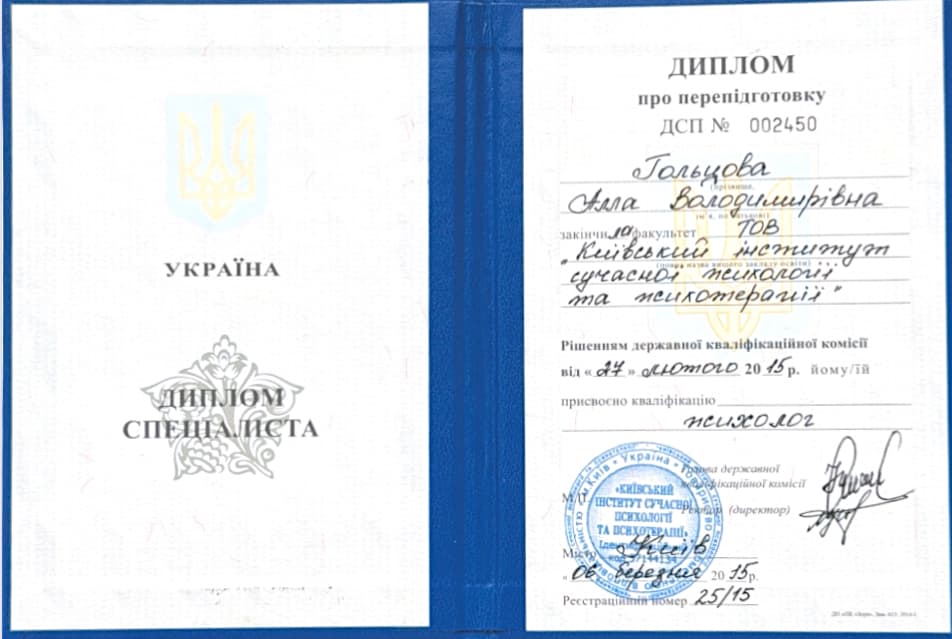 УКРАЇНА
ДИПЛОМ
СПЕЦІАЛІСТА
ДИПЛОМ
про перепідготовку
ДСП № 002450
Гольцова
(прізвище,
Алла Володимирівна
закінчила факультет ТОВ
„Київський інститут
сучасної психології
та психотерапії"
Рішенням державної кваліфікаційної комісії
від « 27 » лютого 20 15 р. йому/їй
присвоєно кваліфікацію
психолог
Голова державної
кваліфікаційної комісії
М.П.
Ректор (директор)
«КИЇВСЬКИЙ
ІНСТИТУТ СУЧАСНОЇ
ПСИХОЛОГІЇ
ТА ПСИХОТЕРАПІЇ»
Місто Київ
„ 06 „ березня 20 15 р.
Реєстраційний номер 25/15